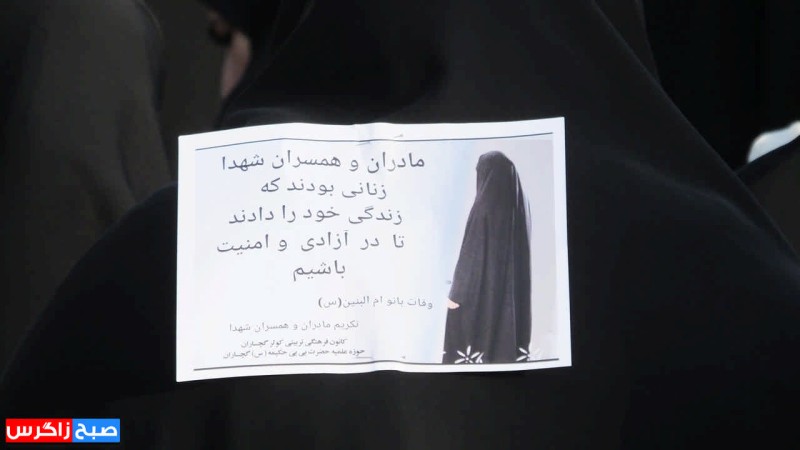 مادران و همسران شهدا
زنانی بودند که
زندگی خود را دادند
تا در آزادی و امنیت
باشیم
وفات بانو ام البنین(س)
تکریم مادران و همسران شهدا
کانون فرهنگی تربیتی کوثر گچساران
حوزه علمیه حضرت بی بی حکیمه (س) گچساران
صبح زاگرس